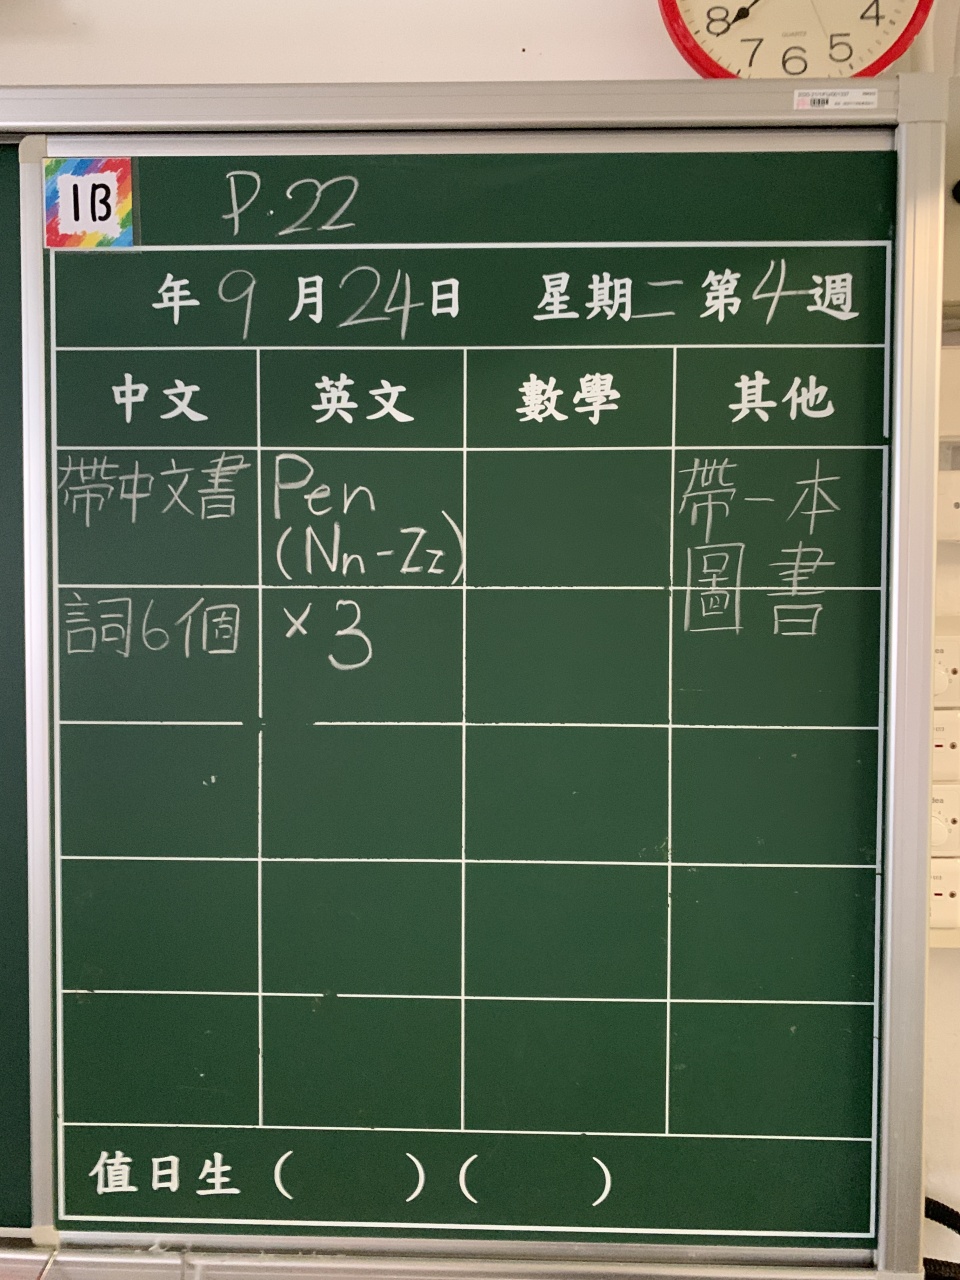 8 7 6 5 4
QUARTZ
1B P.22
年9月24日 星期二第4週
中文 英文 數學 其他
帶中文書 Pen 帶一本
(Nn-Zz) 圖書
詞6個 ×3
值日生 ( ) ( )